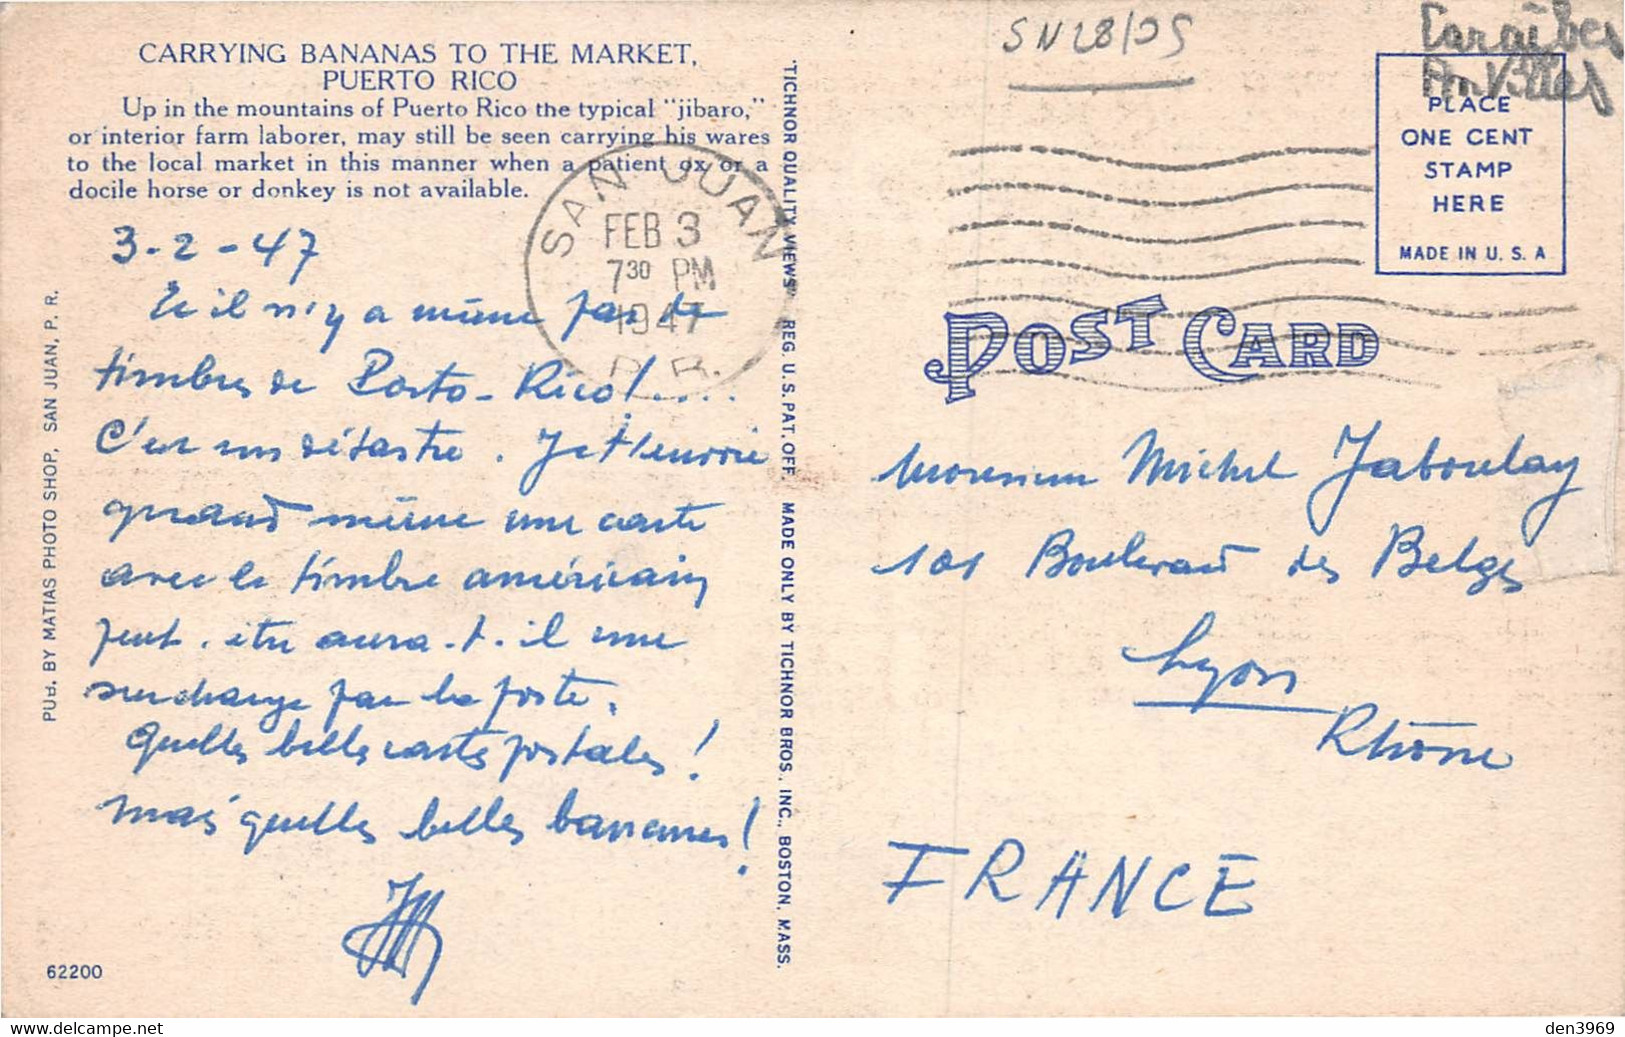 CARRYING BANANAS TO THE MARKET,
PUERTO RICO
Up in the mountains of Puerto Rico the typical "jibaro,"
or interior farm laborer, may still be seen carrying his wares
to the local market in this manner when a patient ox or a
docile horse or donkey is not available.
3-2-47
Et il n'y a même pas de
timbres de Porto-Rico!....
C'est un désastre. Je t'envoie
quand même une carte
avec le timbre américain
peut-être aura-t-il une
surcharge par la poste.
Quelles belles cartes postales!
mais quelles belles bananes!
62200
PUB. BY MATIAS PHOTO SHOP, SAN JUAN, P. R.
SAN JUAN
FEB 3
7 30 PM
1947
P.R.
"TICHNOR QUALITY VIEWS" REG. U. S. PAT. OFF. MADE ONLY BY TICHNOR BROS., INC., BOSTON, MASS.
SN28/05
Caraïbes
Antilles
PLACE
ONE CENT
STAMP
HERE
MADE IN U. S. A
POST CARD
Monsieur Michel Jaboulay
101 Boulevard des Belges
Lyon
Rhône
FRANCE
https://www.delcampe.net/store/den3969
den3969